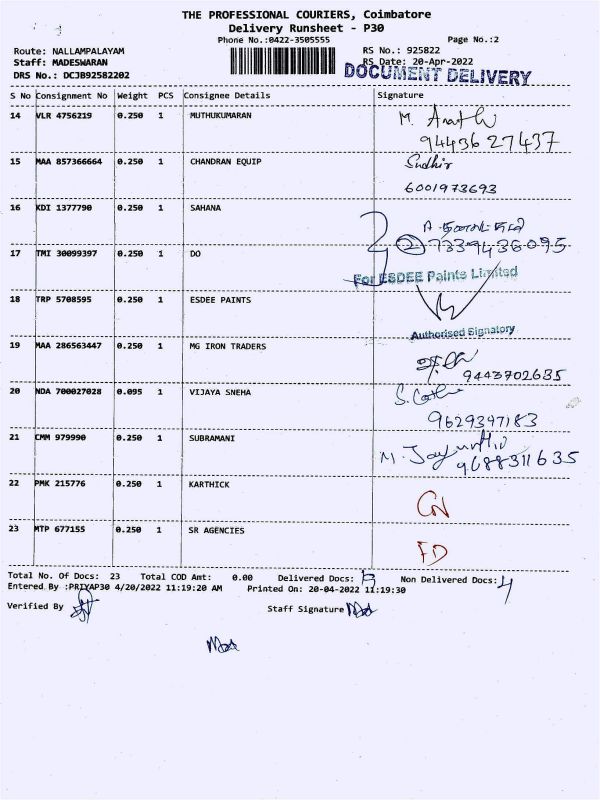 THE PROFESSIONAL COURIERS, Coimbatore
Delivery Runsheet - P30
Phone No.:0422-3505555 Page No.:2
Route: NALLAMPALAYAM RS No.: 925822
Staff: MADESWARAN RS Date: 20-Apr-2022
DRS No.: DCJB92582202 DOCUMENT DELIVERY
S No Consignment No Weight PCS Consignee Details Signature
14 VLR 4756219 0.250 1 MUTHUKUMARAN M. Arathi
9443627437
15 MAA 857366664 0.250 1 CHANDRAN EQUIP Sudhir
6001973693
16 KDI 1377790 0.250 1 SAHANA
17 TMI 30099397 0.250 1 DO 7339436095
For ESDEE Paints Limited
18 TRP 5708595 0.250 1 ESDEE PAINTS
Authorised Signatory
19 MAA 286563447 0.250 1 MG IRON TRADERS
9443702635
20 NDA 700027028 0.095 1 VIJAYA SNEHA
9629397183
21 CMM 979990 0.250 1 SUBRAMANI M.
9688311635
22 PMK 215776 0.250 1 KARTHICK CN
23 MTP 677155 0.250 1 SR AGENCIES FD
Total No. Of Docs: 23 Total COD Amt: 0.00 Delivered Docs: Non Delivered Docs: 4
Entered By :PRIYAP30 4/20/2022 11:19:20 AM Printed On: 20-04-2022 11:19:30
Verified By Staff Signature